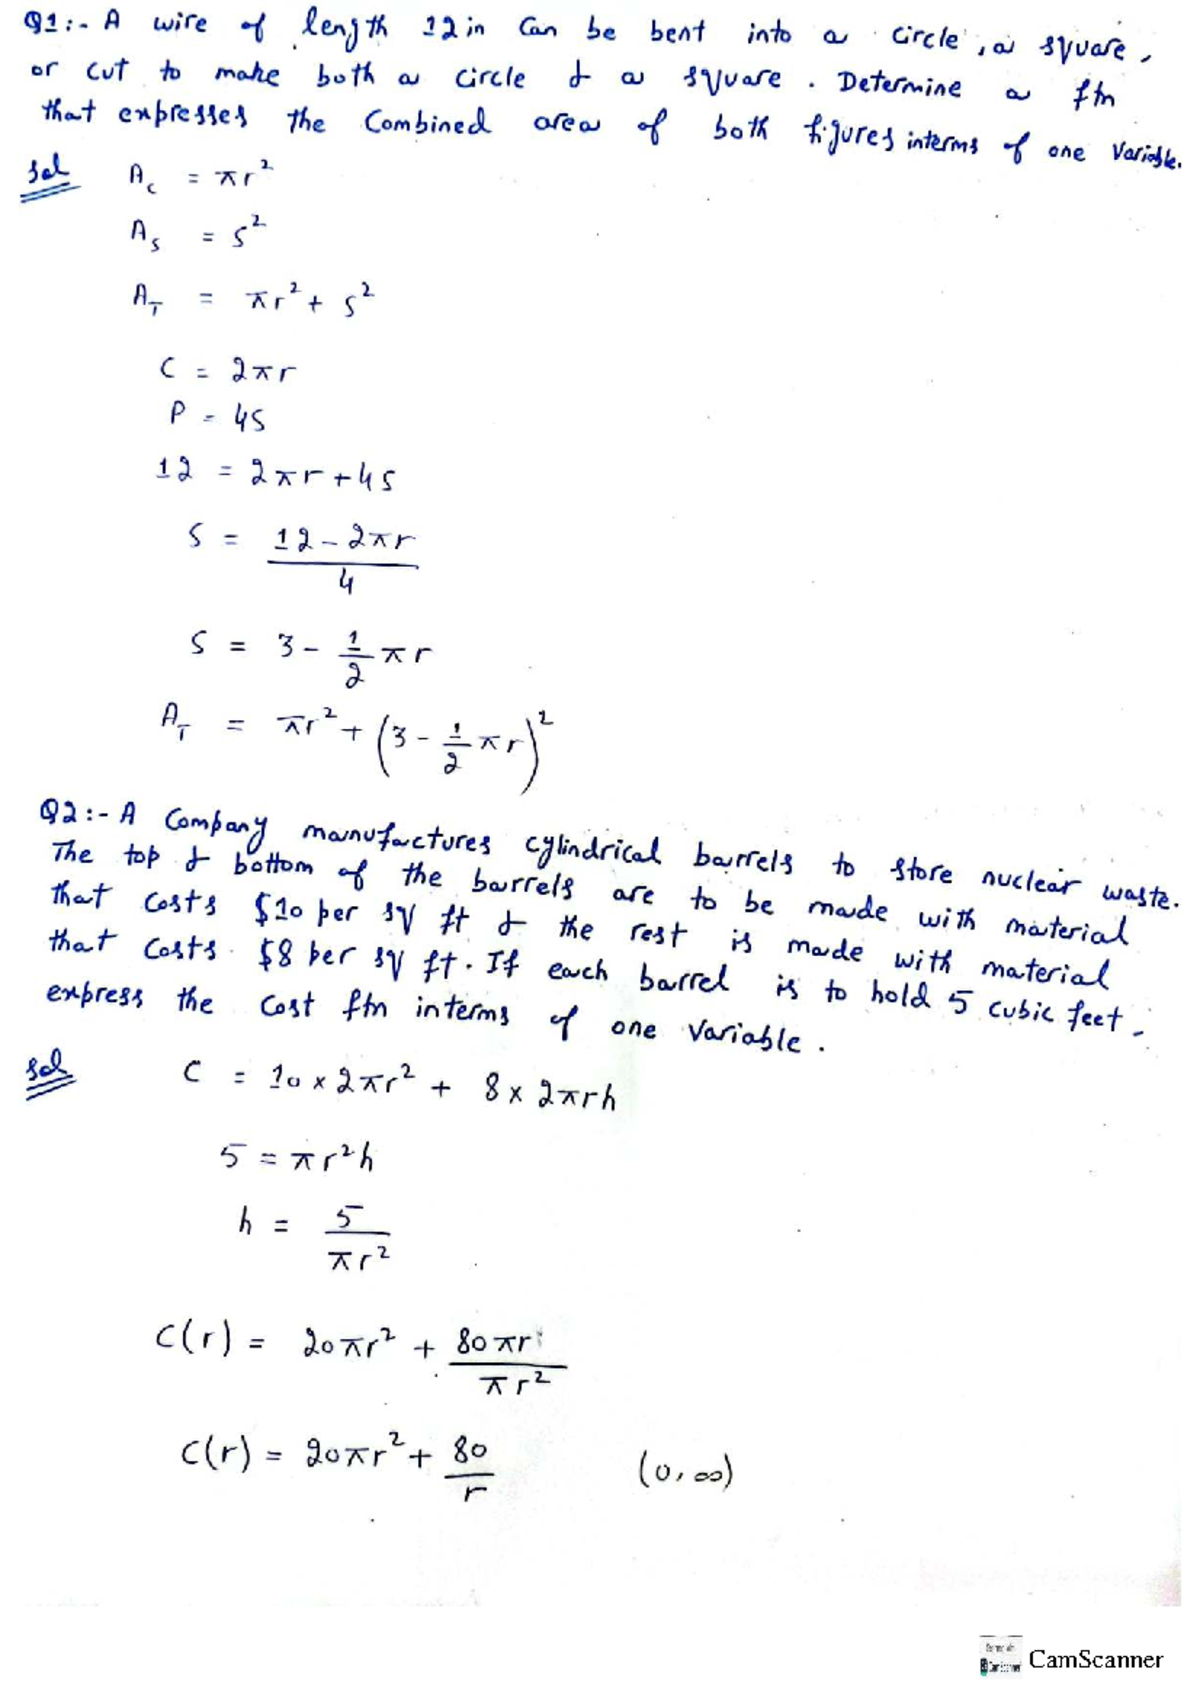 Q1:- A wire of length 12in can be bent into a circle, a square,
or cut to make both a circle & a square. Determine a ftn
that expresses the combined area of both figures interms of one variable.
Sol
A_c = πr²
A_s = s²
A_T = πr² + s²
C = 2πr
P = 4s
12 = 2πr + 4s
s = (12 - 2πr)/4
s = 3 - 1/2 πr
A_T = πr² + (3 - 1/2 πr)²
Q2:- A Company manufactures cylindrical barrels to store nuclear waste.
The top & bottom of the barrels are to be made with material
that costs $10 per sq ft & the rest is made with material
that costs $8 per sq ft. If each barrel is to hold 5 cubic feet.
express the cost ftn interms of one variable.
Sol
C = 10 × 2πr² + 8 × 2πrh
5 = πr²h
h = 5/πr²
C(r) = 20πr² + 80πr/πr²
C(r) = 20πr² + 80/r (0, ∞)
CamScanner